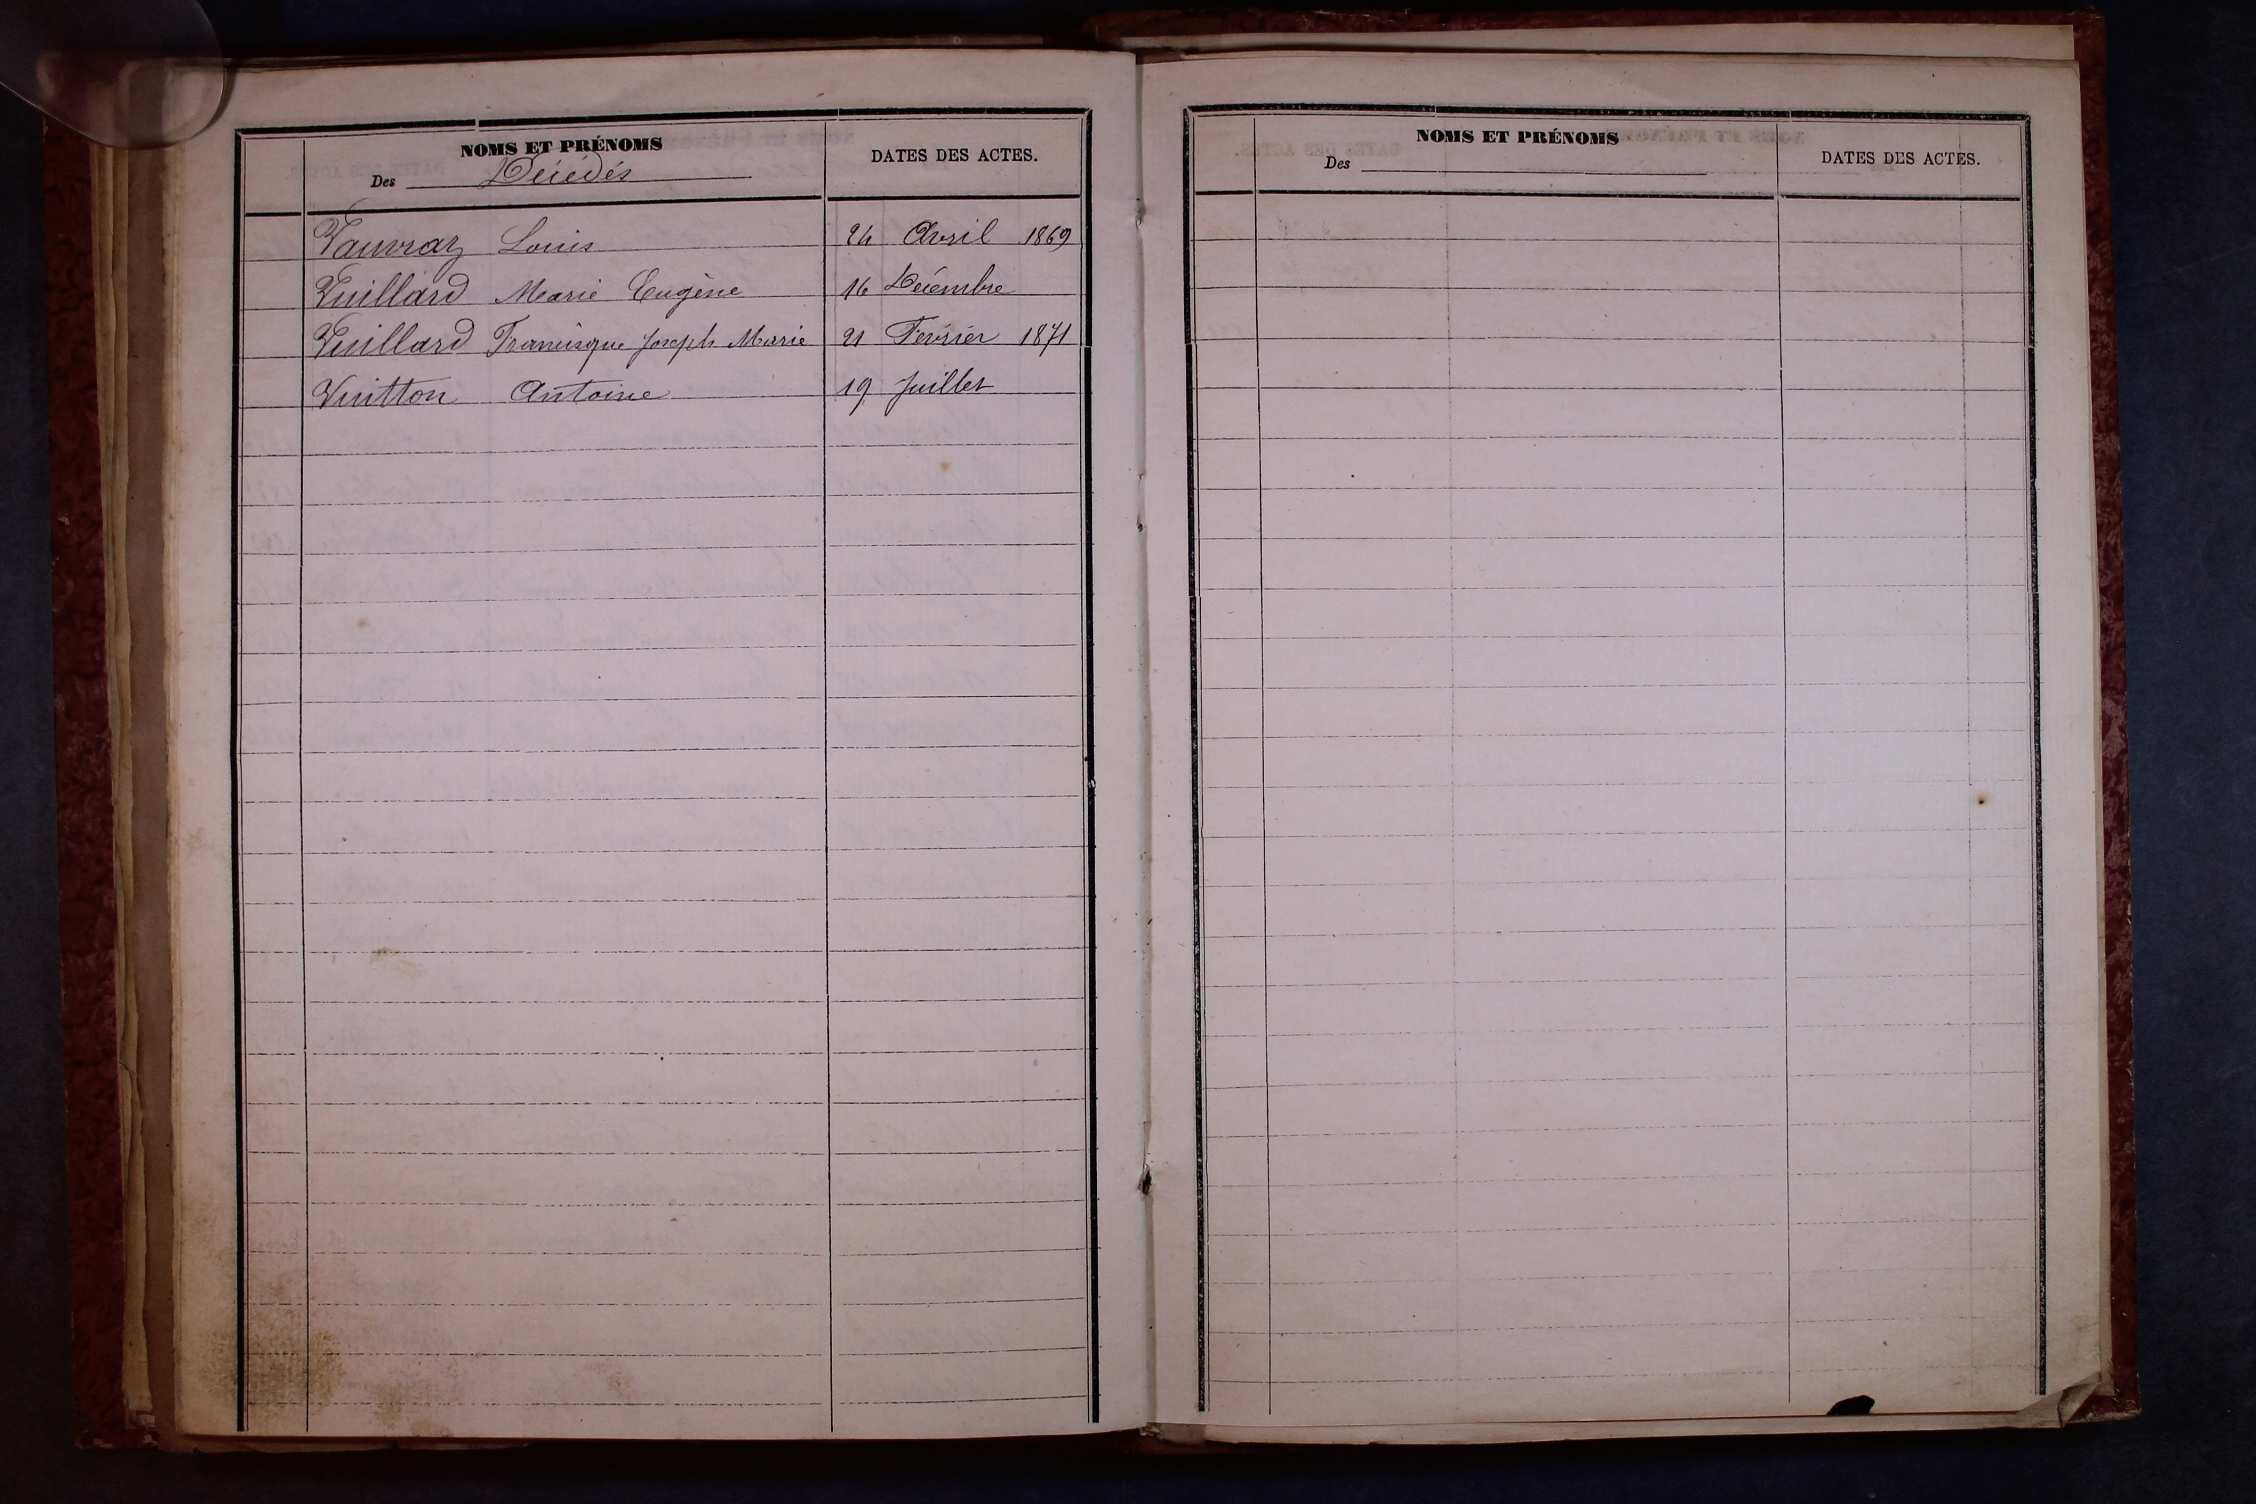 NOMS ET PRÉNOMS
Des Décédés
DATES DES ACTES.
Vauvray Louis 24 Avril 1869
Vuillard Marie Eugène 16 Décembre
Vuillard Francisque Joseph Marie 21 Fevrier 1871
Vuitton Antoine 19 Juillet
NOMS ET PRÉNOMS
Des
DATES DES ACTES.